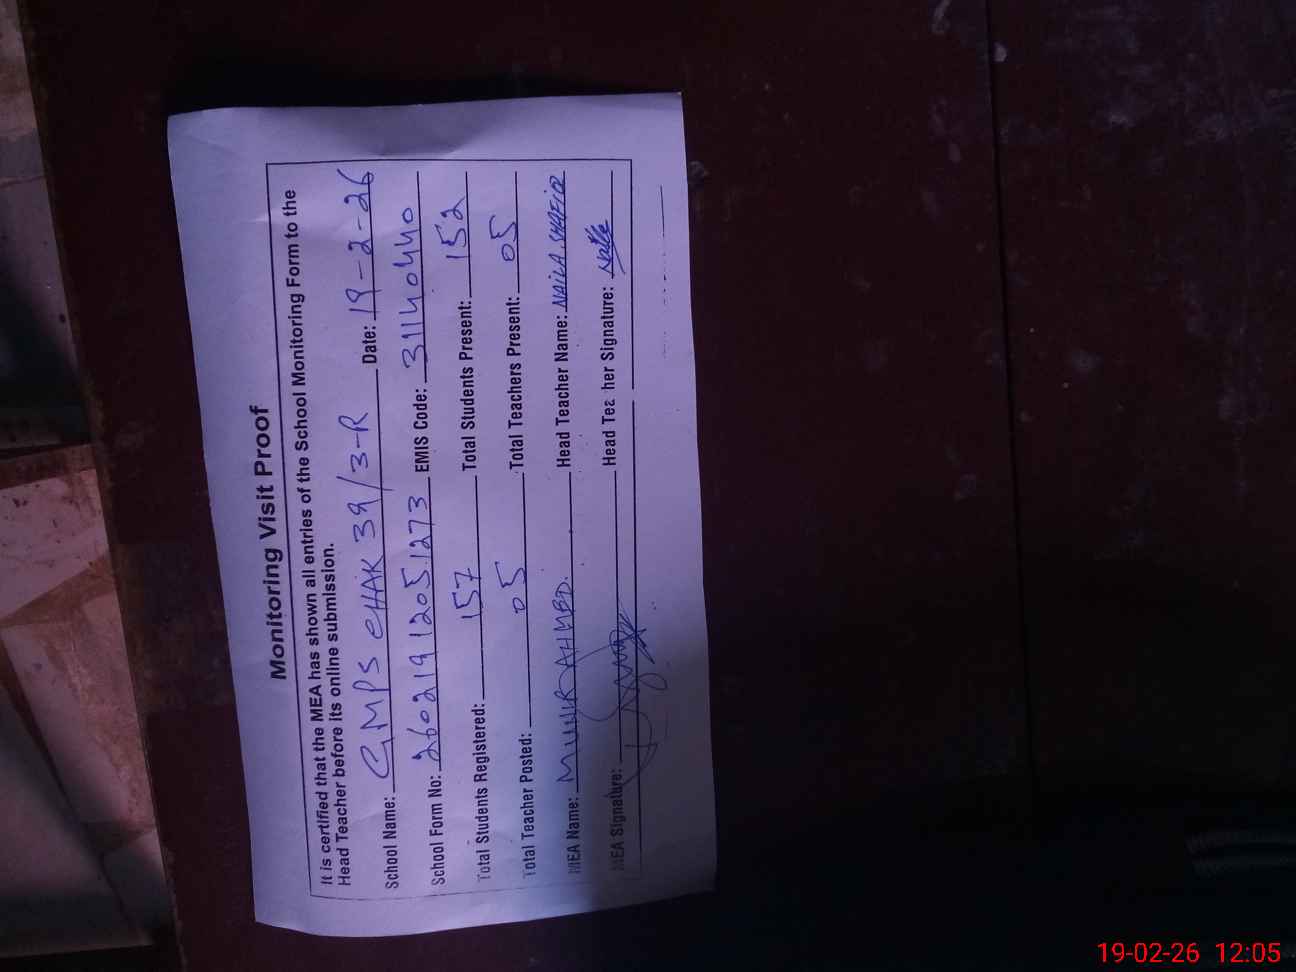 Monitoring Visit Proof
It is certified that the MEA has shown all entries of the School Monitoring Form to the
Head Teacher before its online submission.
School Name: GMPS CHAK 39/3-R Date: 19-2-26
School Form No: 26021912051273 EMIS Code: 31140440
Total Students Registered: 157 Total Students Present: 152
Total Teacher Posted: 05 Total Teachers Present: 05
MEA Name: MUNIR AHMED. Head Teacher Name: NAILA SHAFIQ
MEA Signature: Head Teacher Signature: Naila
19-02-26 12:05